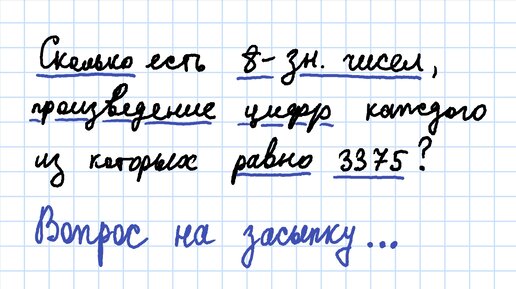 Сколько есть 8-зн. чисел,
произведение цифр каждого
из которых равно 3375?
Вопрос на засыпку...